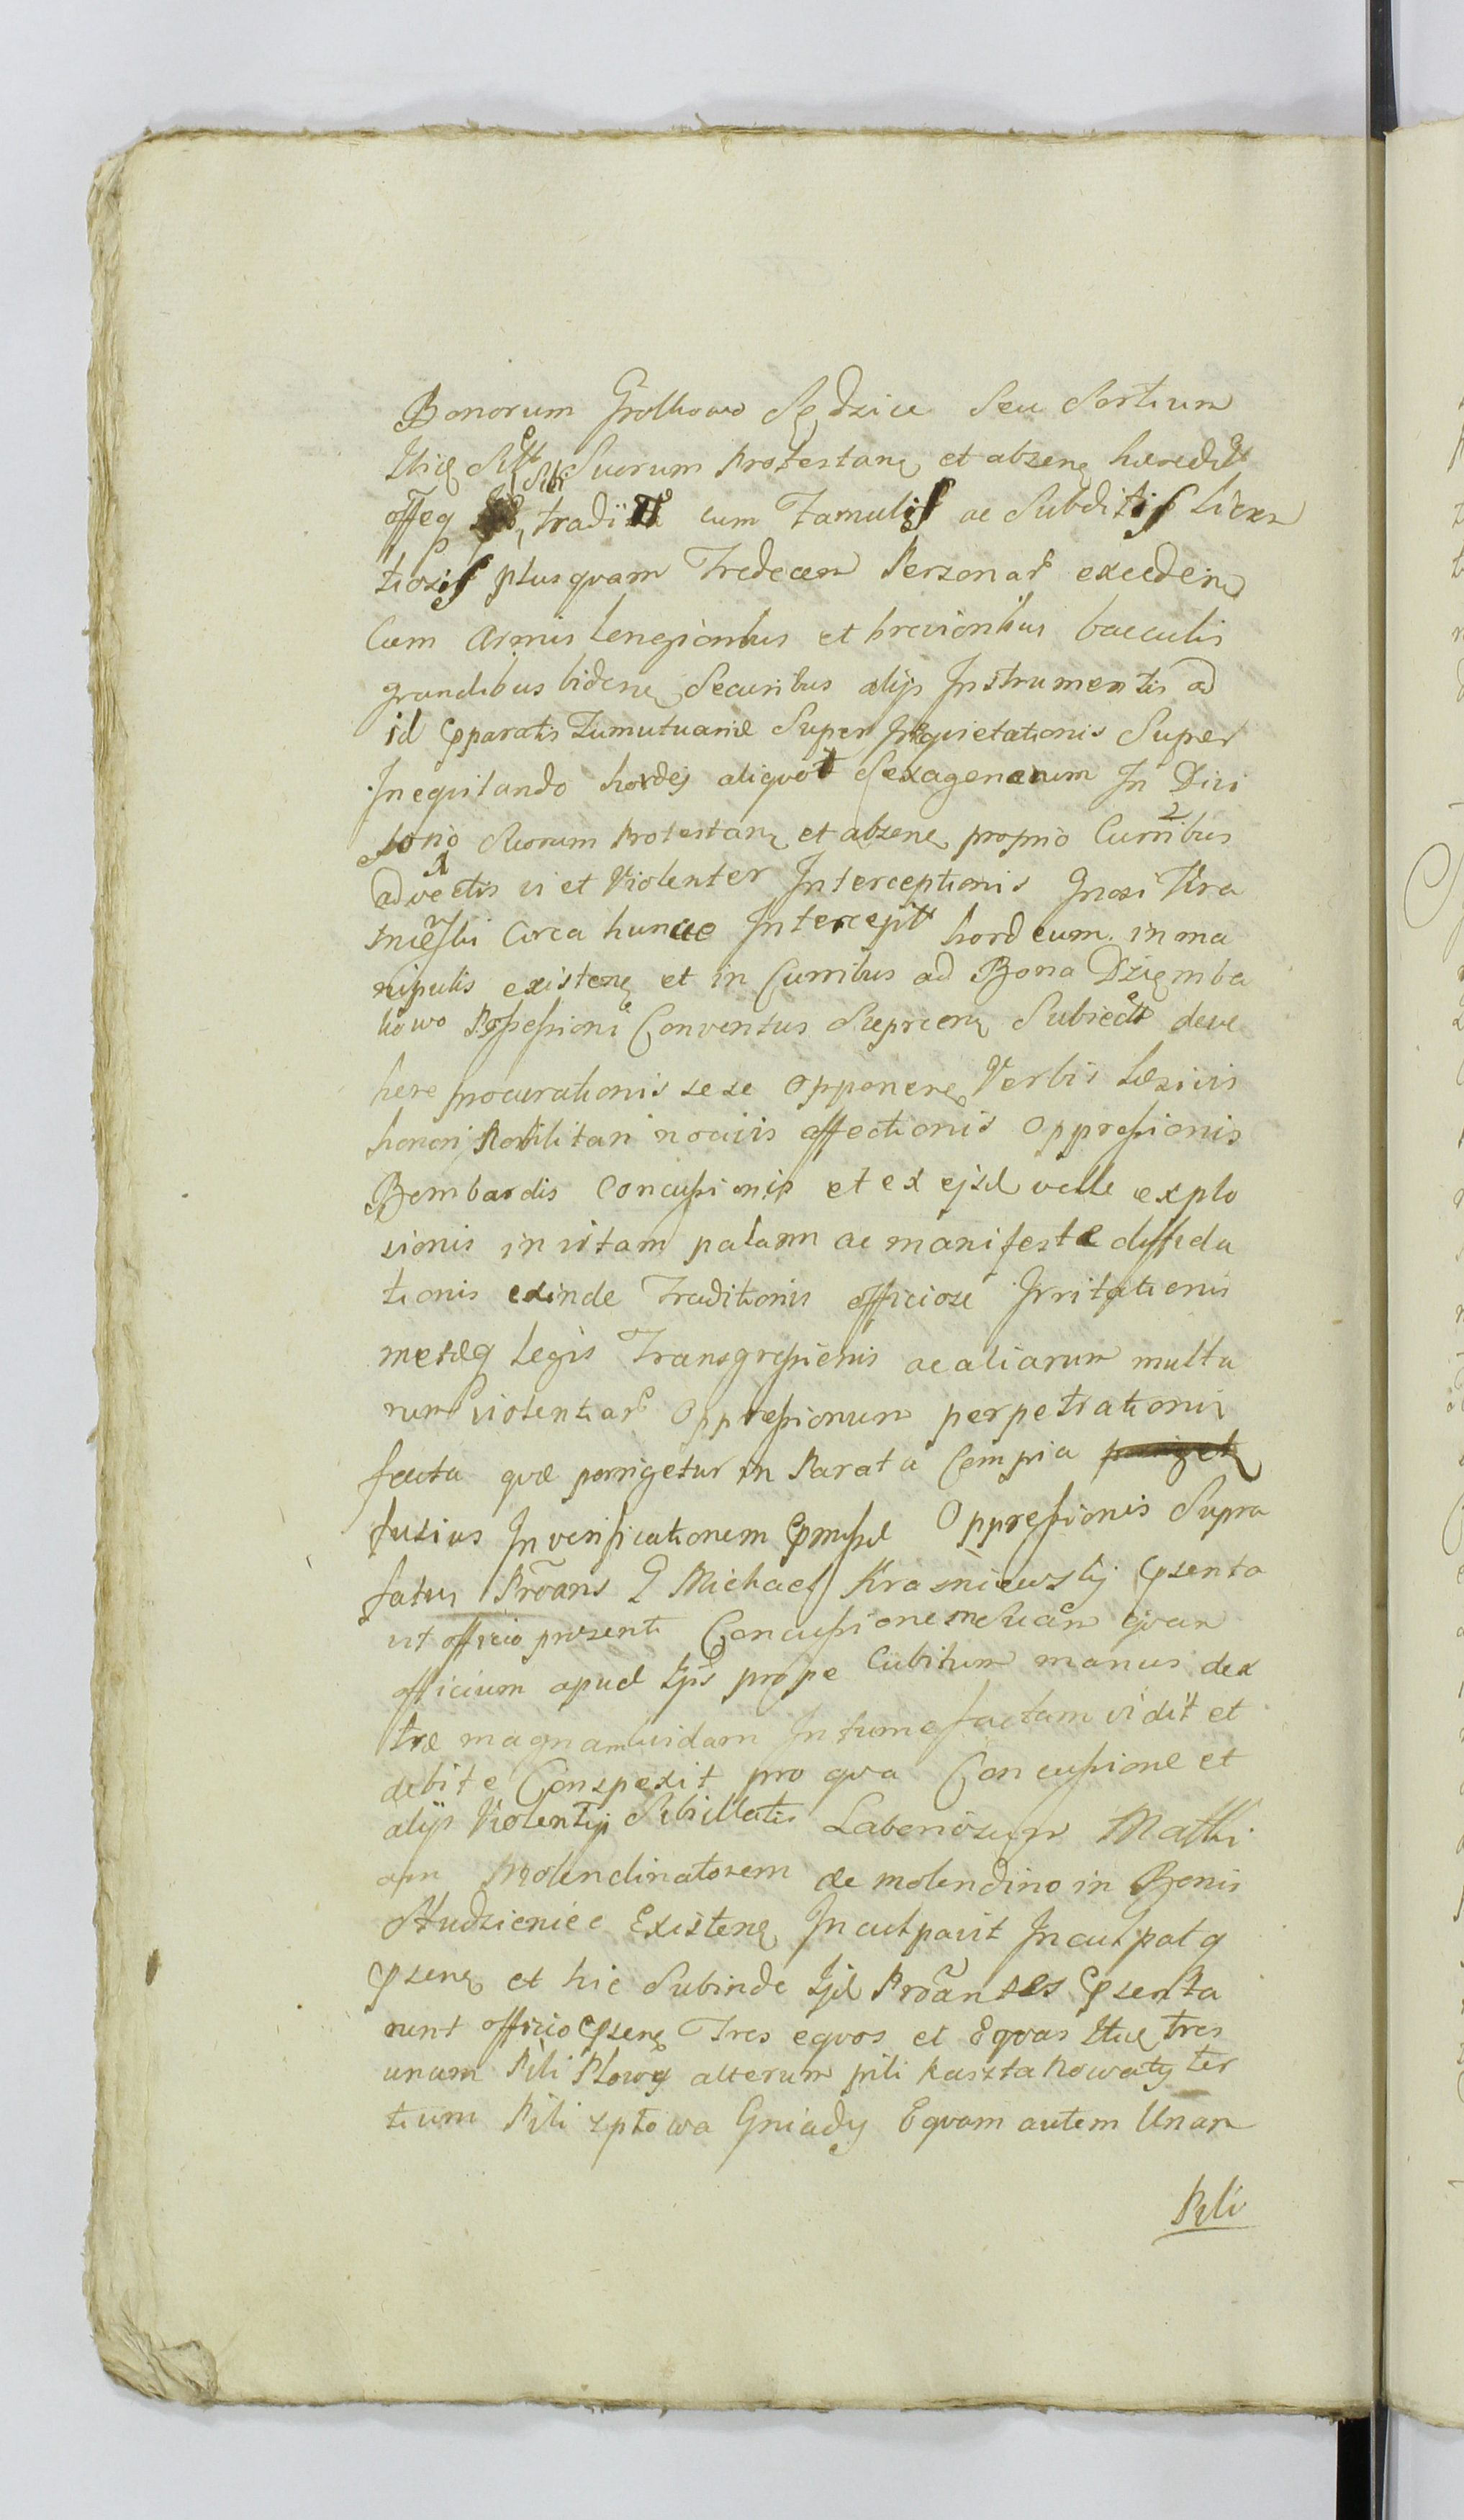 Bonorum Grolkowo Sędzice Seu Sortium
Ibid Suorum Protestanę et absenę hæredit
offeq tradit cum Famulis ac Subditis Licen
tiosis plusquam Tredecem Personar exceden
Cum Armis Longioribus et brevioribus bacculis
grandibus bidenę Securibus alijs Instrumentis ad
id pparatis Tumutuarie Super Inqvietationis Super
Ineqvitando hordej aliqvot Sexagenarum In Divi
sorio Suorum Protestanę et absenę proprio Curribus
advectis vi et Violenter Interceptionis Gnosi Kra
sniewski Circa hunc Intercepit hordeum in ma
nipulis existenę et in Curribus ad Bona Dziemba
kowo Possessioni Conventus Sieprcenę Subiect deve
here procurationis sese opponenę Verbis Læsivis
honori Nobilitari nocivis affectionis Oppressionis
Bombardis Concussionis et ex ejsd velle explo
sionis in vitam palam ac manifeste diffida
tionis exinde Traditionis officiose Irritationis
metæq Legis Transgressionis ac aliarum multa
rum violentiar Oppressionum perpetrationis
facta qvæ porrigetur in Parata Compia
fusius In verificationem pmissl Oppressionis Supra
fatus Proans G Michael Krasniewskij psenta
vit officio præsenti Concussionem Suam qvam
officium apud Ips prope Cubitum manus dex
træ magnam lividam Intumefactam vidit et
debite Conspexit pro qva Concussione et
alijs Violentijs Sibi illatis Laboriosum Matthi
am Molendinatorem de molendino in Bonis
Studzieniec Existenę Inculpavit Inculpatq
psenę et hic Subinde Ijd Proantes psenta
runt officio psenę Tres eqvos et Eqvas Itid tres
unum Pili Plowy alterum pili kasztanowaty ter
tium Pili zptowa Gniady Eqvam autem Unam
Pili